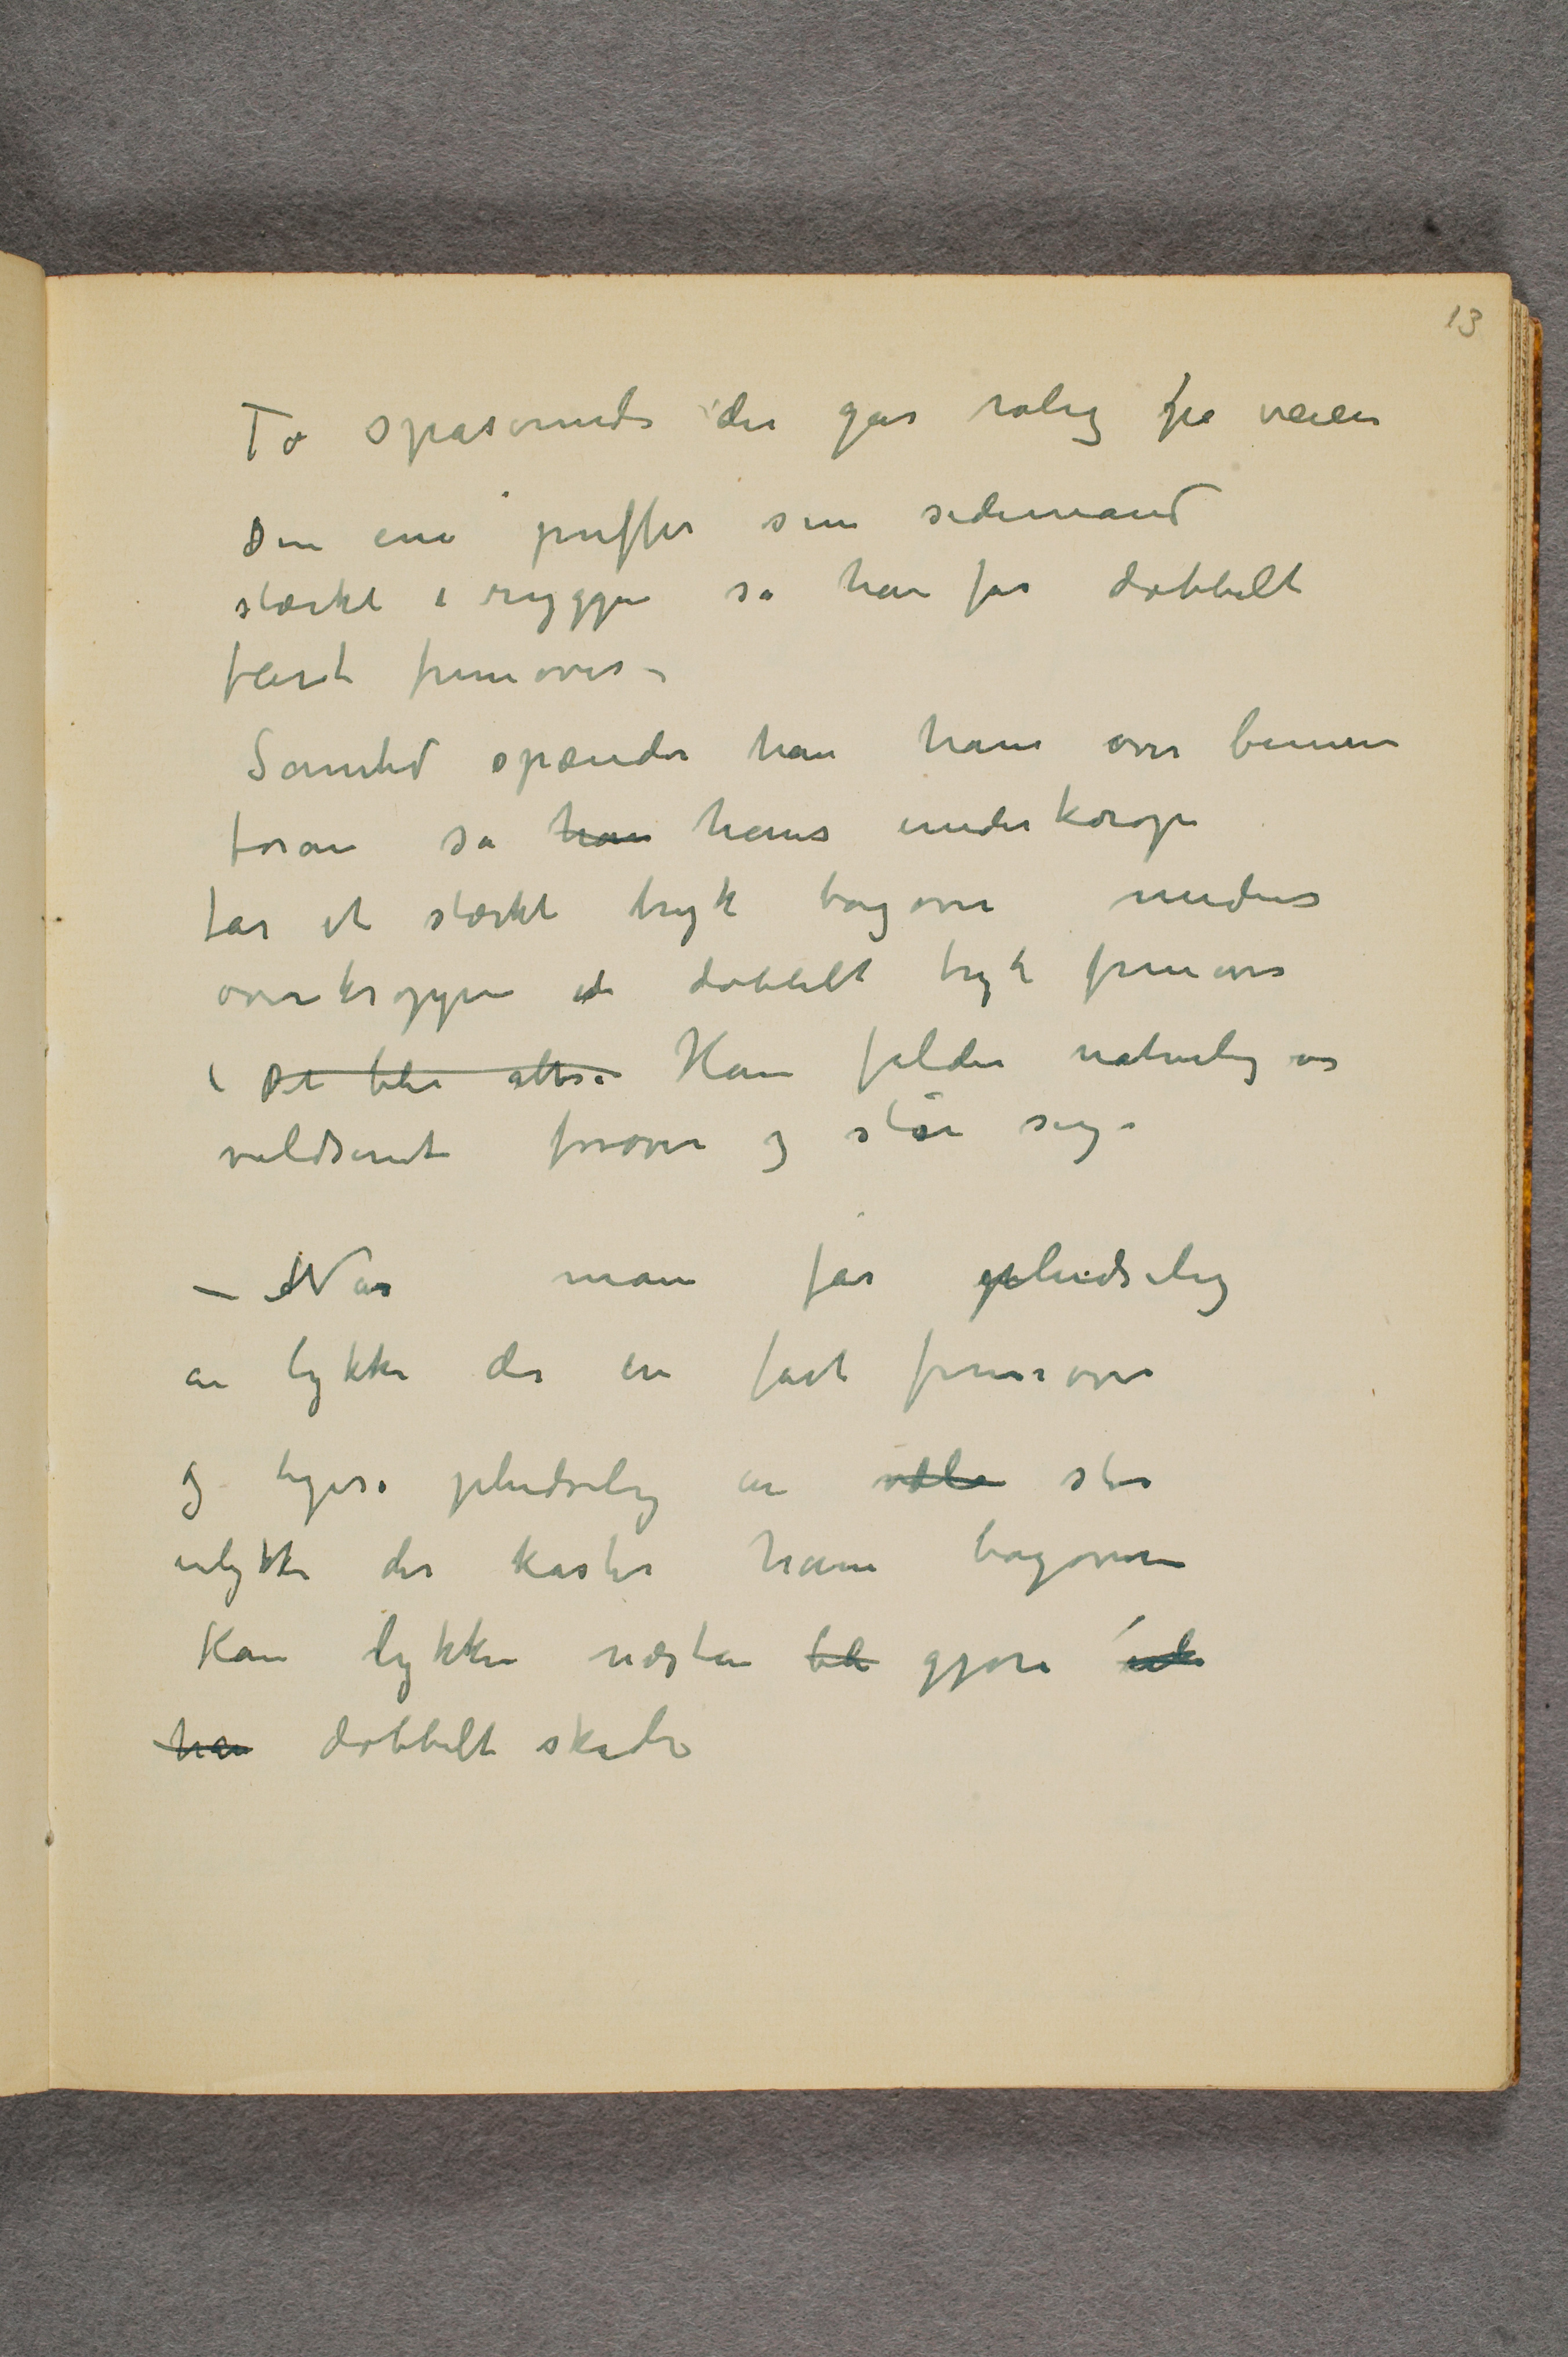 13
To spaserende der går rolig på veien
Den ene puffer sin sidemand
stærkt i ryggen så han får dobbelt
fart fremover –
Samtid spænder han ham over benene
foran så han hans underkrop
får et stærkt tryk bagover medens
overkroppen et dobbelt tryk fremover
( Det blir altså Han falder naturlig vis
voldsomt forover og slår sig.
– Når man får pludselig
en lykke der en fart fremover
og ligeså pludselig en stor
ulykke der kaster ham bagover
Kan lykken næsten bli gjøre
ham dobbelt skade